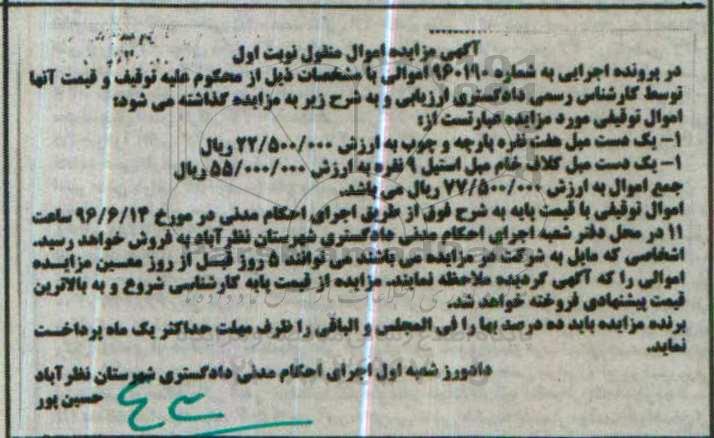 آگهی مزایده اموال منقول نوبت اول
در پرونده اجرایی به شماره ۹۶۰۱۹۰ اموالی با مشخصات ذیل از محکوم علیه توقیف و قیمت آنها
توسط کارشناس رسمی دادگستری ارزیابی و به شرح زیر به مزایده گذاشته می شود:
اموال توقیفی مورد مزایده عبارتست از:
۱- یک دست مبل هفت نفره پارچه و چوب به ارزش ۲۲/۵۰۰/۰۰۰ ریال
۱- یک دست مبل کلاف خام مبل استیل ۹ نفره به ارزش ۵۵/۰۰۰/۰۰۰ ریال
جمع اموال به ارزش ۷۷/۵۰۰/۰۰۰ ریال می باشد.
اموال توقیفی با قیمت پایه به شرح فوق از طریق اجرای احکام مدنی در مورخ ۹۶/۶/۱۴ ساعت
۱۱ در محل دفتر شعبه اجرای احکام مدنی دادگستری شهرستان نظرآباد به فروش خواهد رسید.
اشخاصی که مایل به شرکت در مزایده می باشند می توانند ۵ روز قبل از روز معین مزایده
اموالی را که آگهی گردیده ملاحظه نمایند. مزایده از قیمت پایه کارشناسی شروع و به بالاترین
قیمت پیشنهادی فروخته خواهد شد.
برنده مزایده باید ده درصد بها را فی المجلس و الباقی را ظرف مهلت حداکثر یک ماه پرداخت
نماید.
دادورز شعبه اول اجرای احکام مدنی دادگستری شهرستان نظرآباد
حسین پور